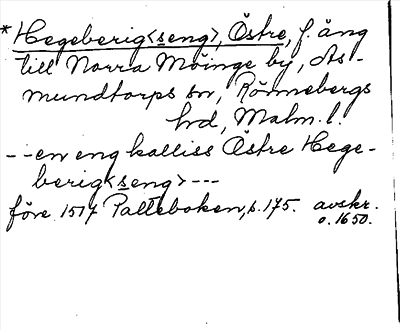 * Hegeberig<seng>, Östre, f. äng
till Norra Möinge by, As-
mundtorps sn, Rönnebergs
hd, Malm. l.
--en eng kalliss Östre Hege-
berig<seng>---
före 1517 Palteboken, s. 175. avskr.
o. 1650.